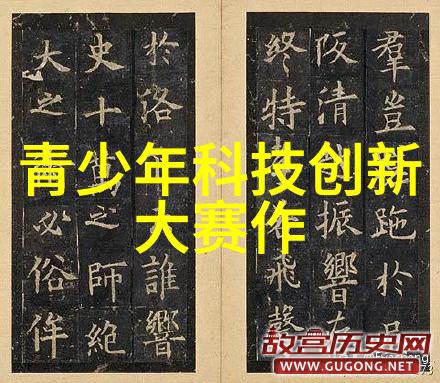 羣豈跎於
阪清振響
終特飛聲
於洛誰響
史十萬之師絕
大之必俗侔
青少年科技创新
大赛作
故宫历史网
WWW.GUGONG.NET